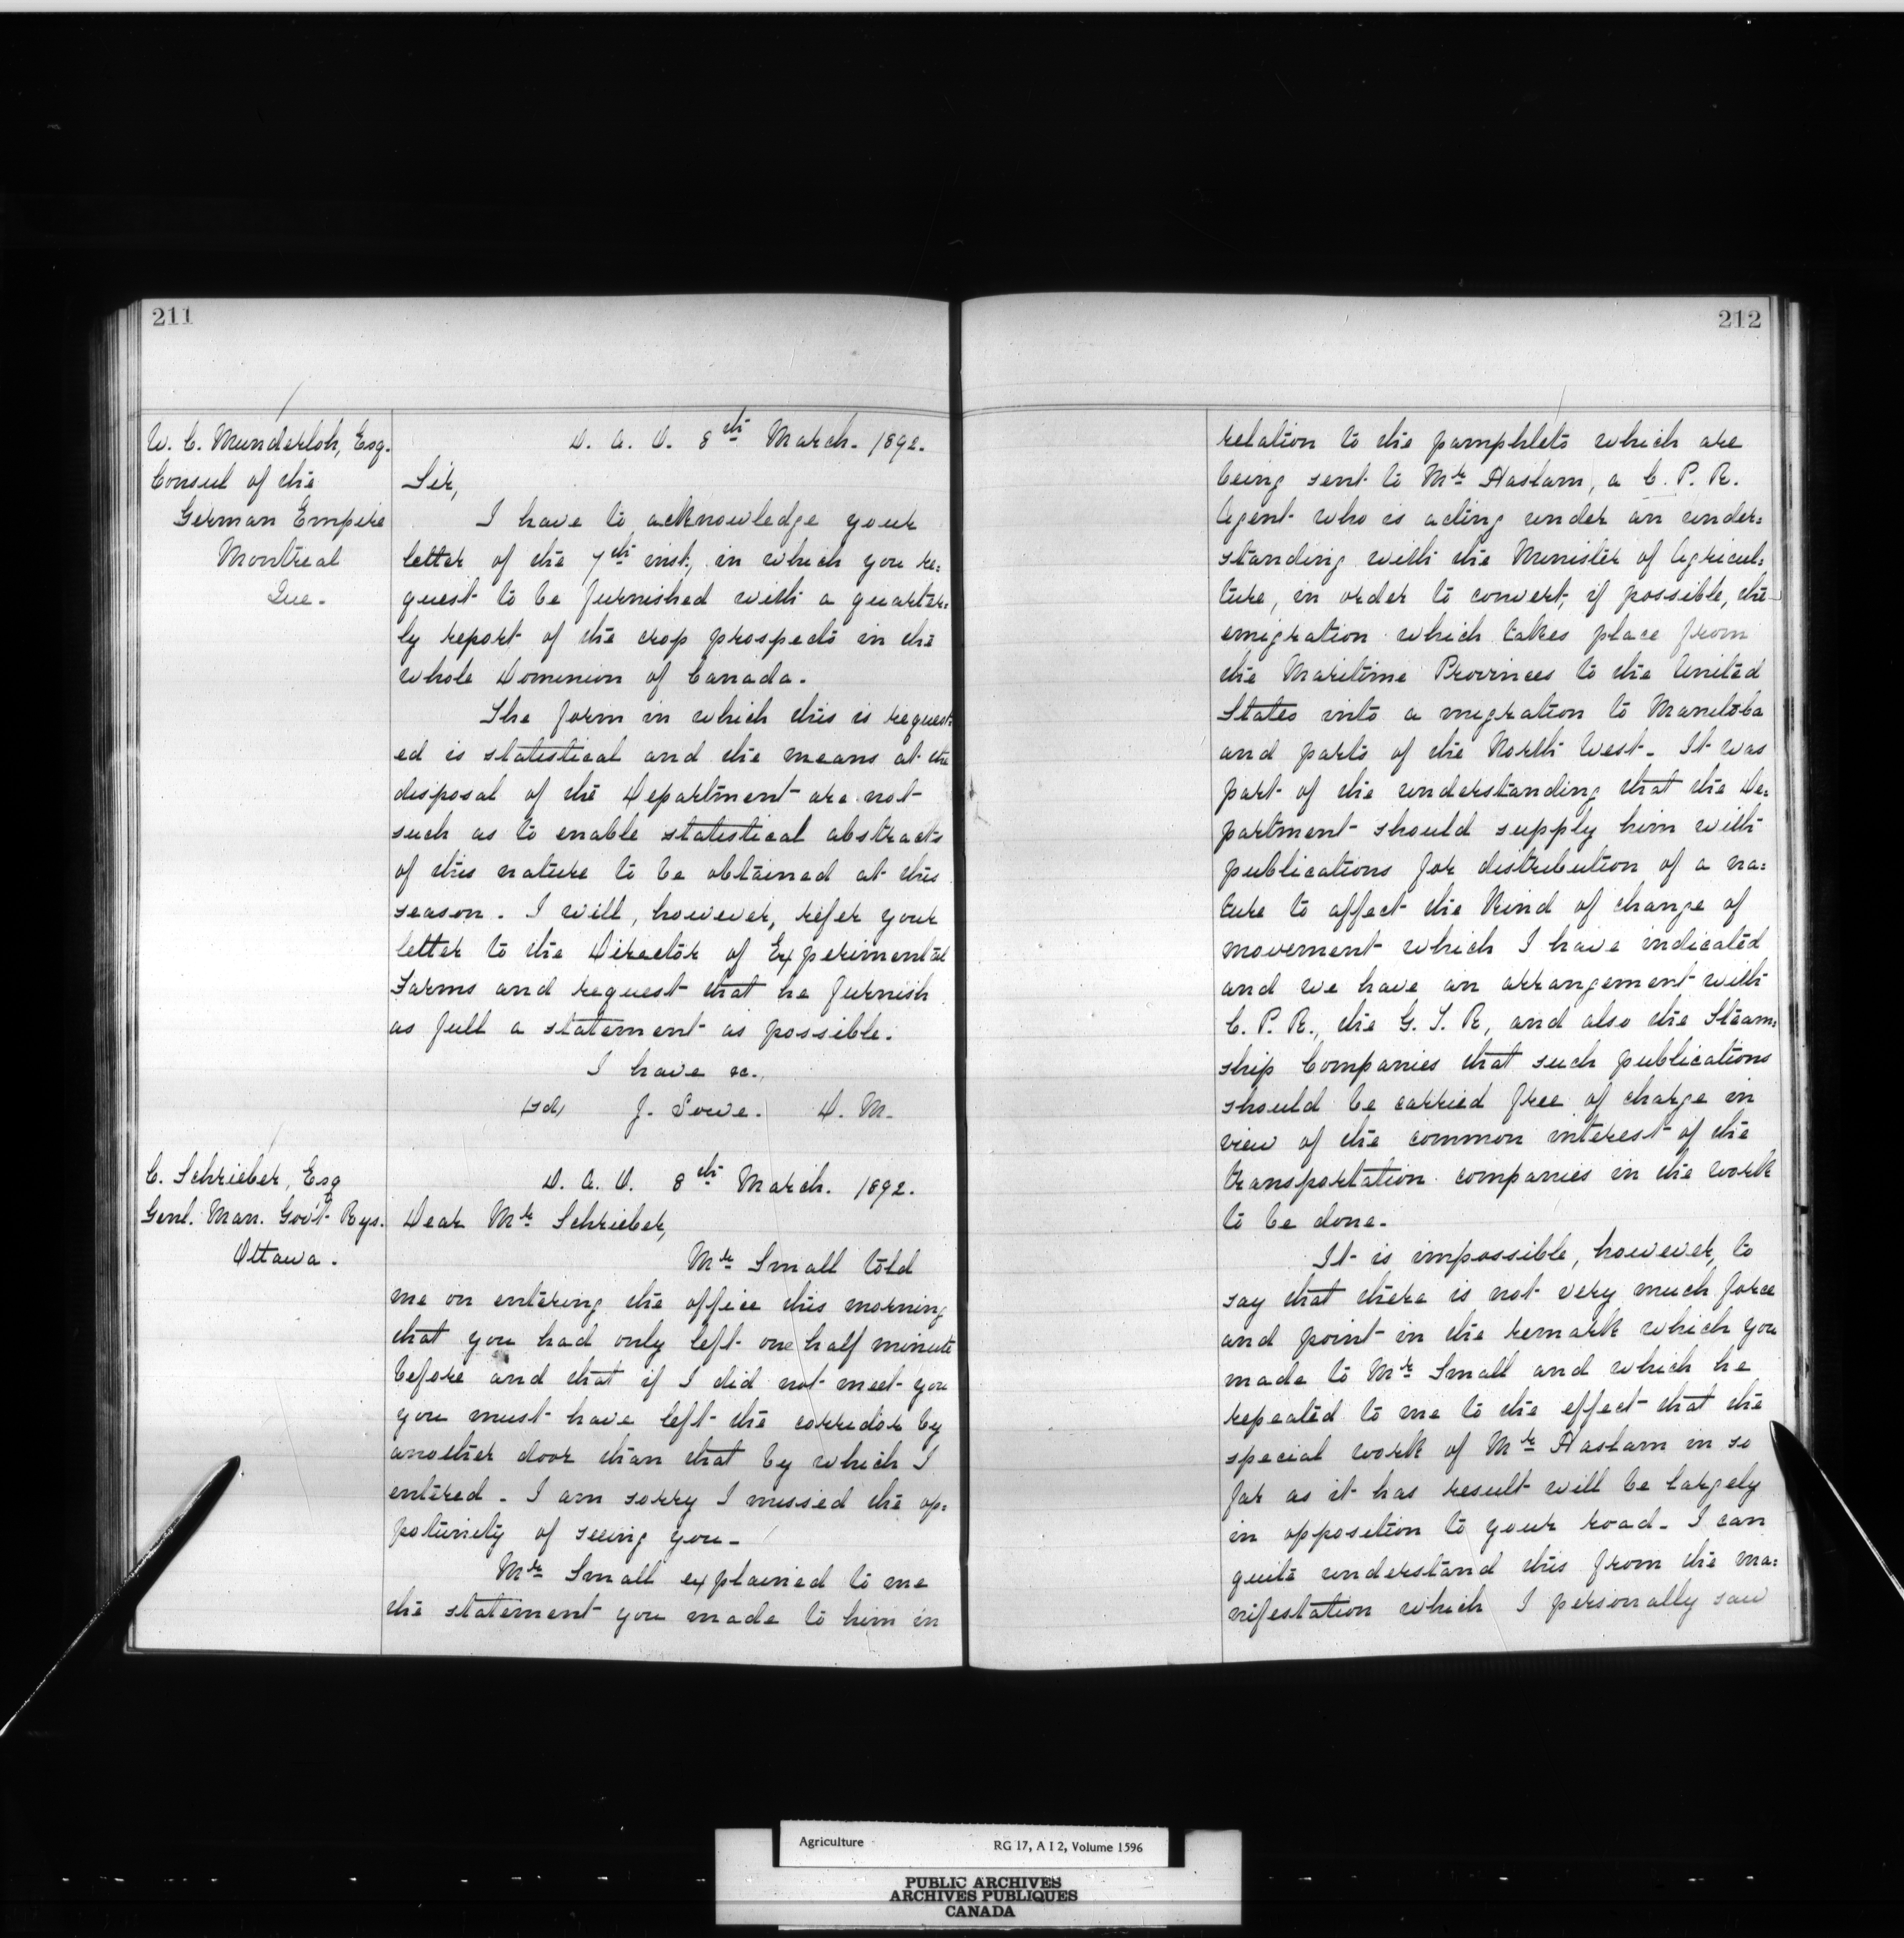 211
W. C. Munderloh, Esq.
Consul of the
German Empire
Montreal
Que.
D. A. O. 8th March. 1892.
Sir,
I have to acknowledge your
letter of the 7th inst., in which you re=
quest to be furnished with a quarter=
ly report of the crop prospects in the
whole Dominion of Canada.
The form in which this is request=
ed is statistical and the means at the
disposal of the Department are not
such as to enable statistical abstracts
of this nature to be obtained at this
season. I will, however, refer your
letter to the Director of Experimental
Farms and request that he furnish
as full a statement as possible.
I have &c.,
(sd) J. Lowe. D. M.
C. Schrieber, Esq
Genl. Man. Gov't Rys.
Ottawa.
D. A. O. 8th March. 1892.
Dear Mr Schrieber,
Mr Small told
me on entering the office this morning
that you had only left one half minute
before and that if I did not meet you
you must have left the corridor by
another door than that by which I
entered. I am sorry I missed the op=
potunity of seeing you.
Mr Small explained to me
the statement you made to him in
212
relation to the pamphlets which are
being sent to Mr Haslam, a C. P. R.
Agent who is acting under an under=
standing with the Minister of Agricul=
ture, in order to convert, if possible, the
emigration which takes place from
the Maritime Provinces to the United
States into a migration to Manitoba
and parts of the North West. It was
part of the understanding that the De=
partment should supply him with
publications for distribution of a na=
ture to affect the kind of change of
movement which I have indicated
and we have an arrangement with
C. P. R., the G. T. R, and also the Steam=
ship Companies that such publications
should be carried free of charge in
view of the common interest of the
transportation companies in the work
to be done.
It is impossible, however, to
say that there is not very much force
and point in the remark which you
made to Mr Small and which he
repeated to me to the effect that the
special work of Mr Haslam in so
far as it has result will be largely
in opposition to your road. I can
quite understand this from the ma=
nifestation which I personally saw
Agriculture RG 17, A I 2, Volume 1596
PUBLIC ARCHIVES
ARCHIVES PUBLIQUES
CANADA